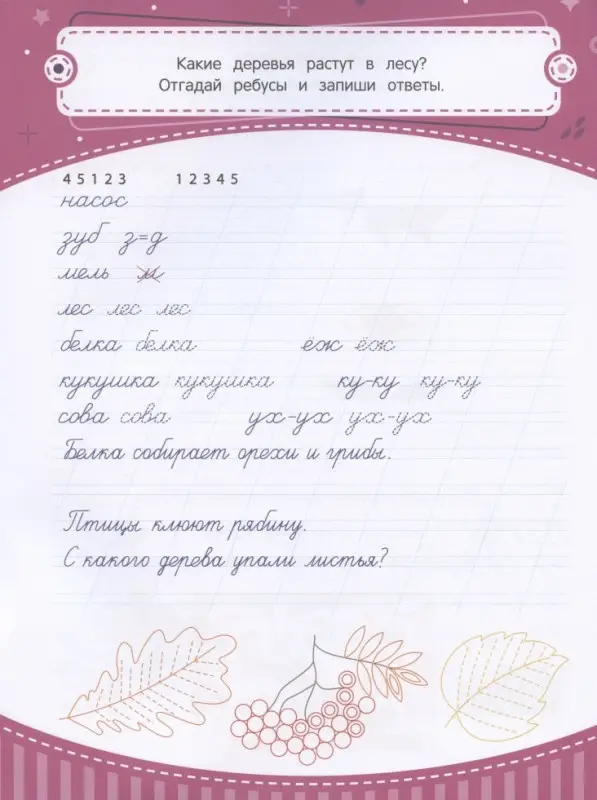 Какие деревья растут в лесу?
Отгадай ребусы и запиши ответы.
4 5 1 2 3 1 2 3 4 5
насос
зуб з=д
мель м
лес лес лес
белка белка ёж ёж
кукушка кукушка ку-ку ку-ку
сова сова ух-ух ух-ух
Белка собирает орехи и грибы.
Птицы клюют рябину.
С какого дерева упали листья?